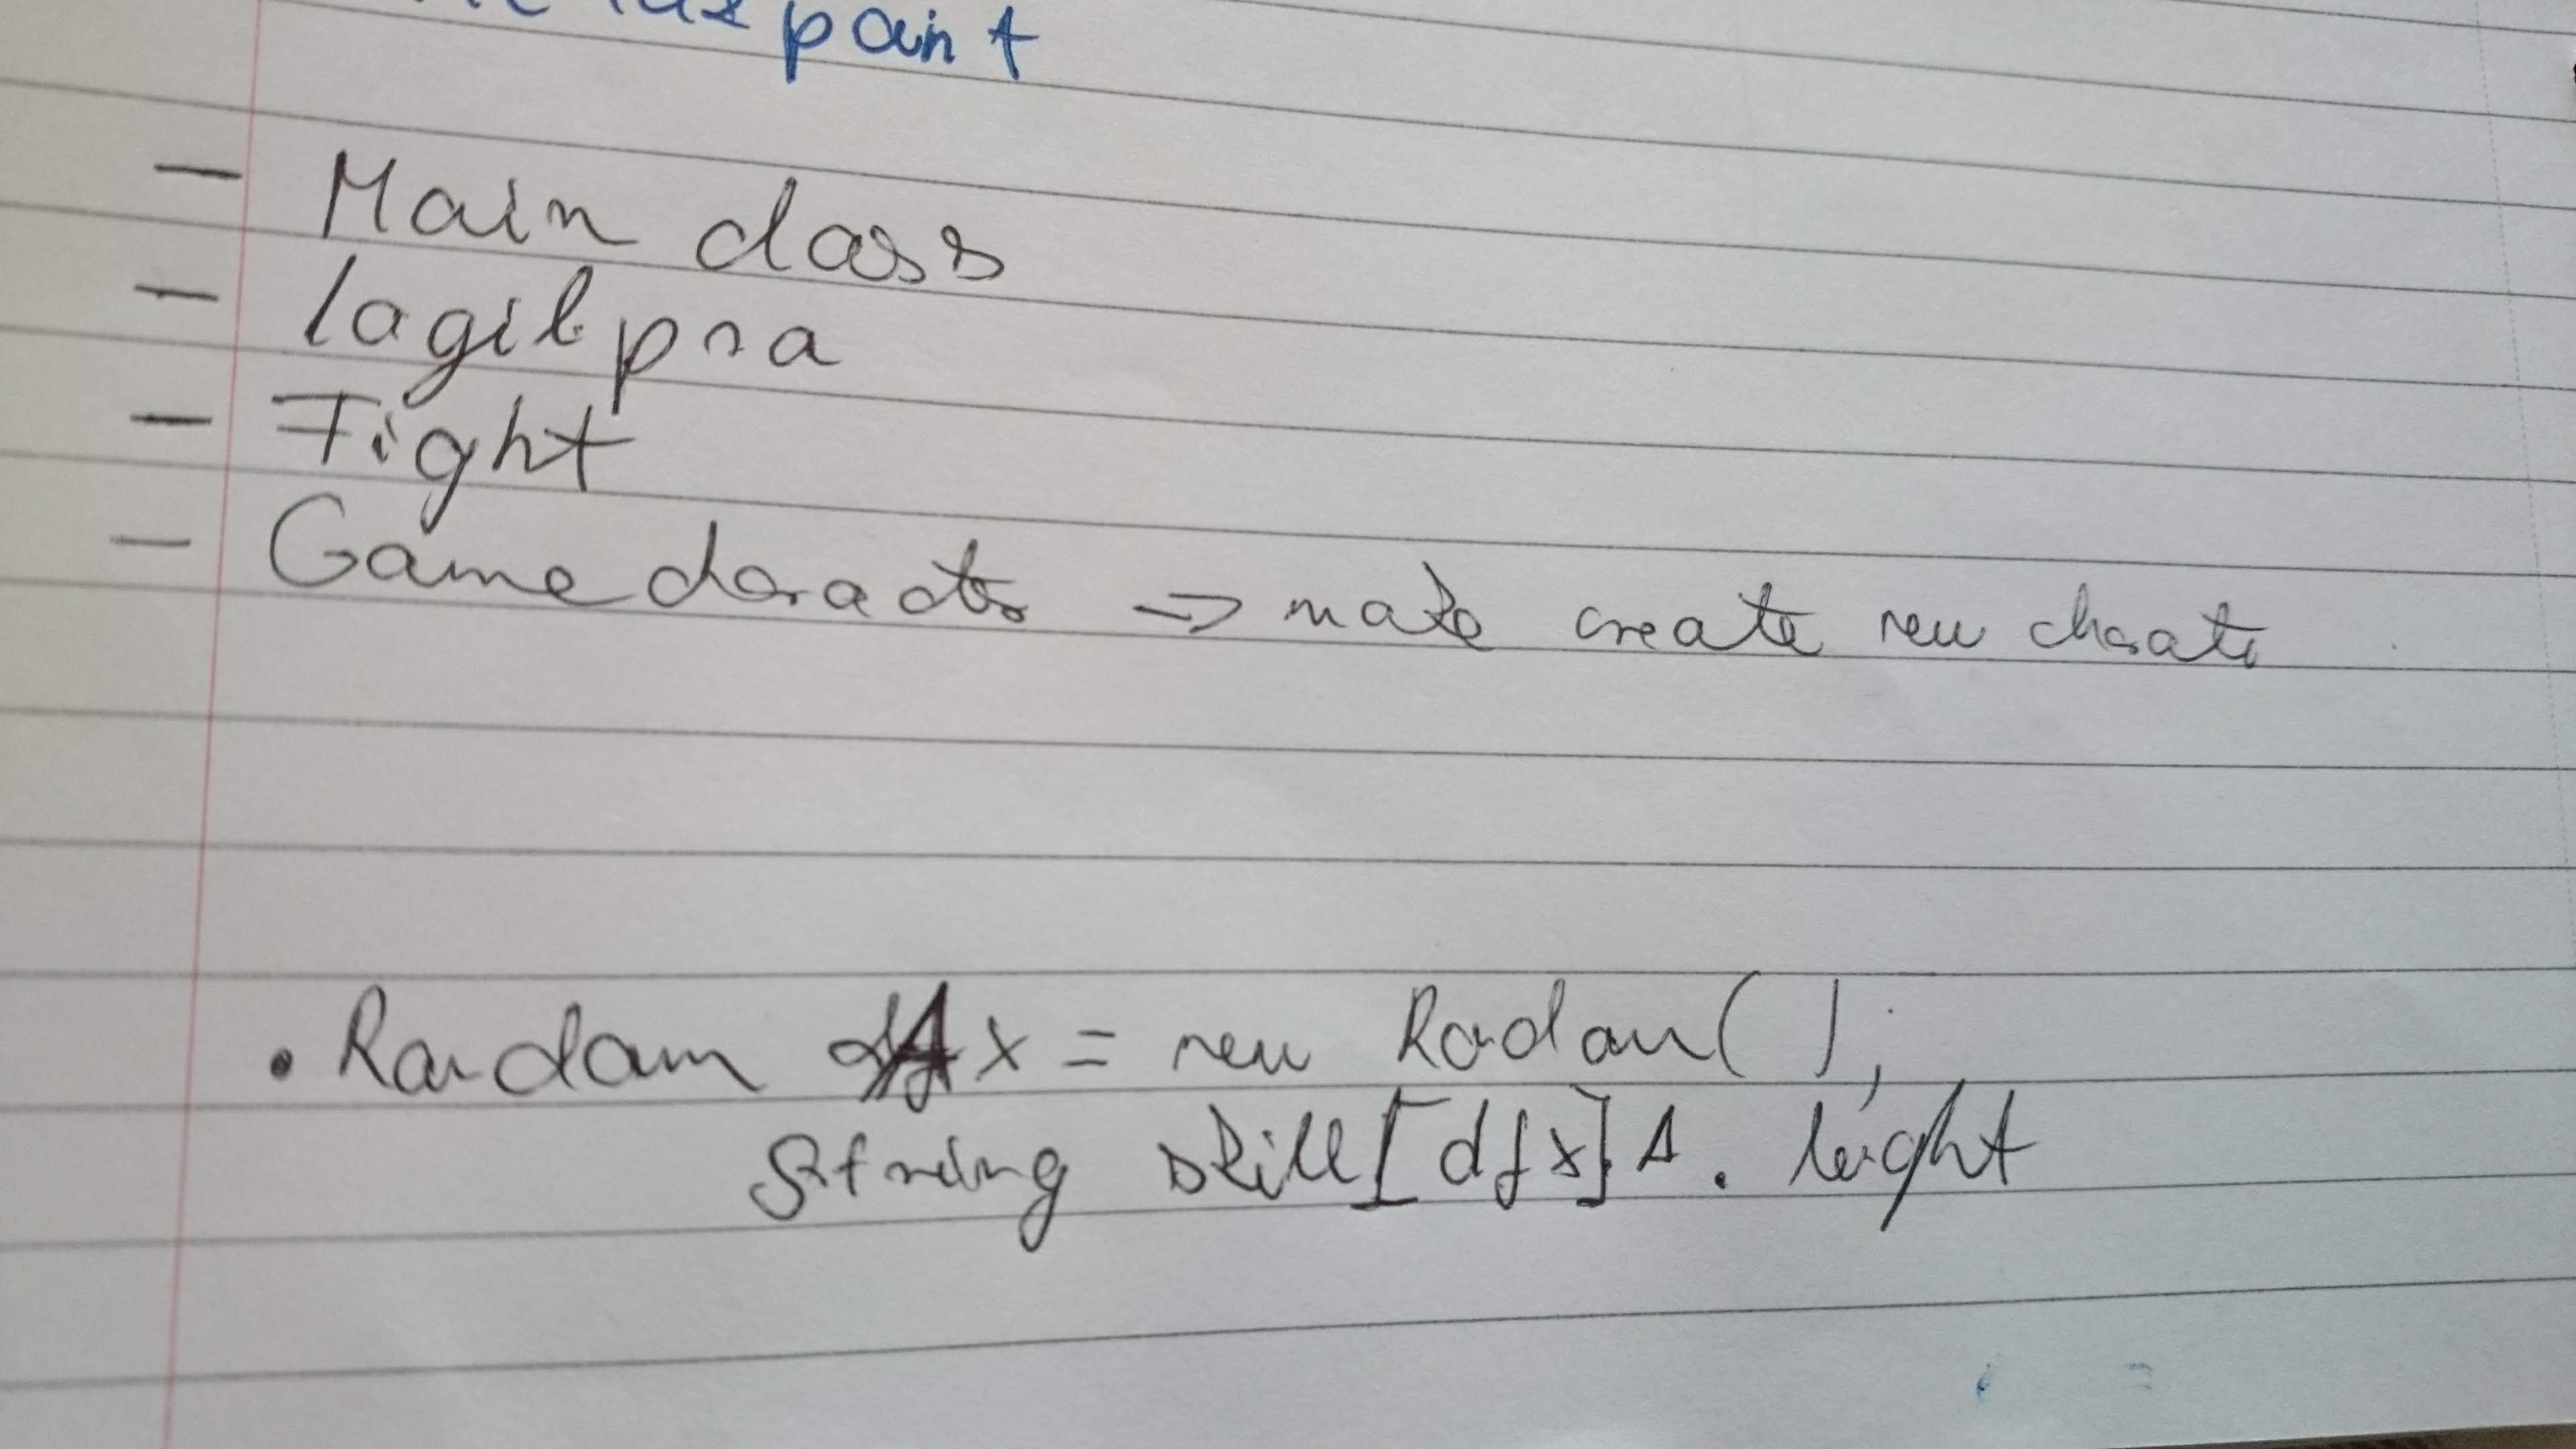 paint
- Main class
- lagilpra
- Fight
- Game character → make create new charater
• Random x = new Random();
String skill[dfx]A. leight